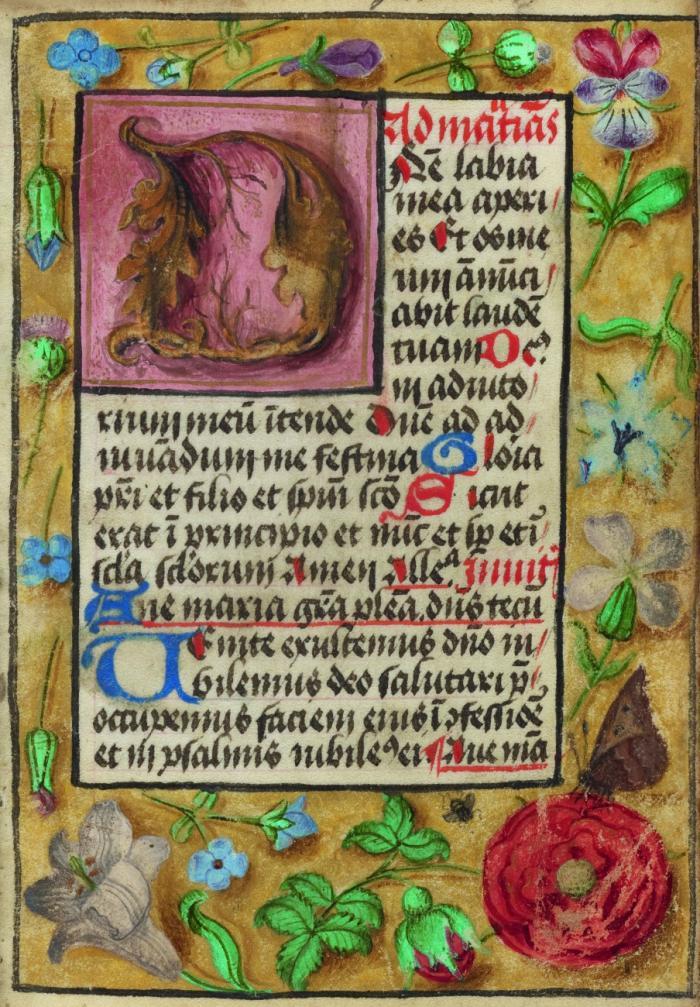 Ad mātīas
Dn̄e labia
mea aperi
es Et os me
um ānūci
abit laudē
tuam Deꝰ
in adiuto
rium meū ītende Dn̄e ad ad
iuuādum me festina Gloia
pr̄i et filio et spiri scō Sicut
erat ī principio et nūc et sp̄ etī
scl̄a scl̄orum Amen Alle.ᵃ Inuit
Aue maria gr̄a plēa. dn̄s tecū
Uenite exultemus dn̄o iu
bilemus deo salutari n̄
occupemus faciem eius ī ꝯfessiōē
et in psalmis iubileꝰ ei. Aue mā